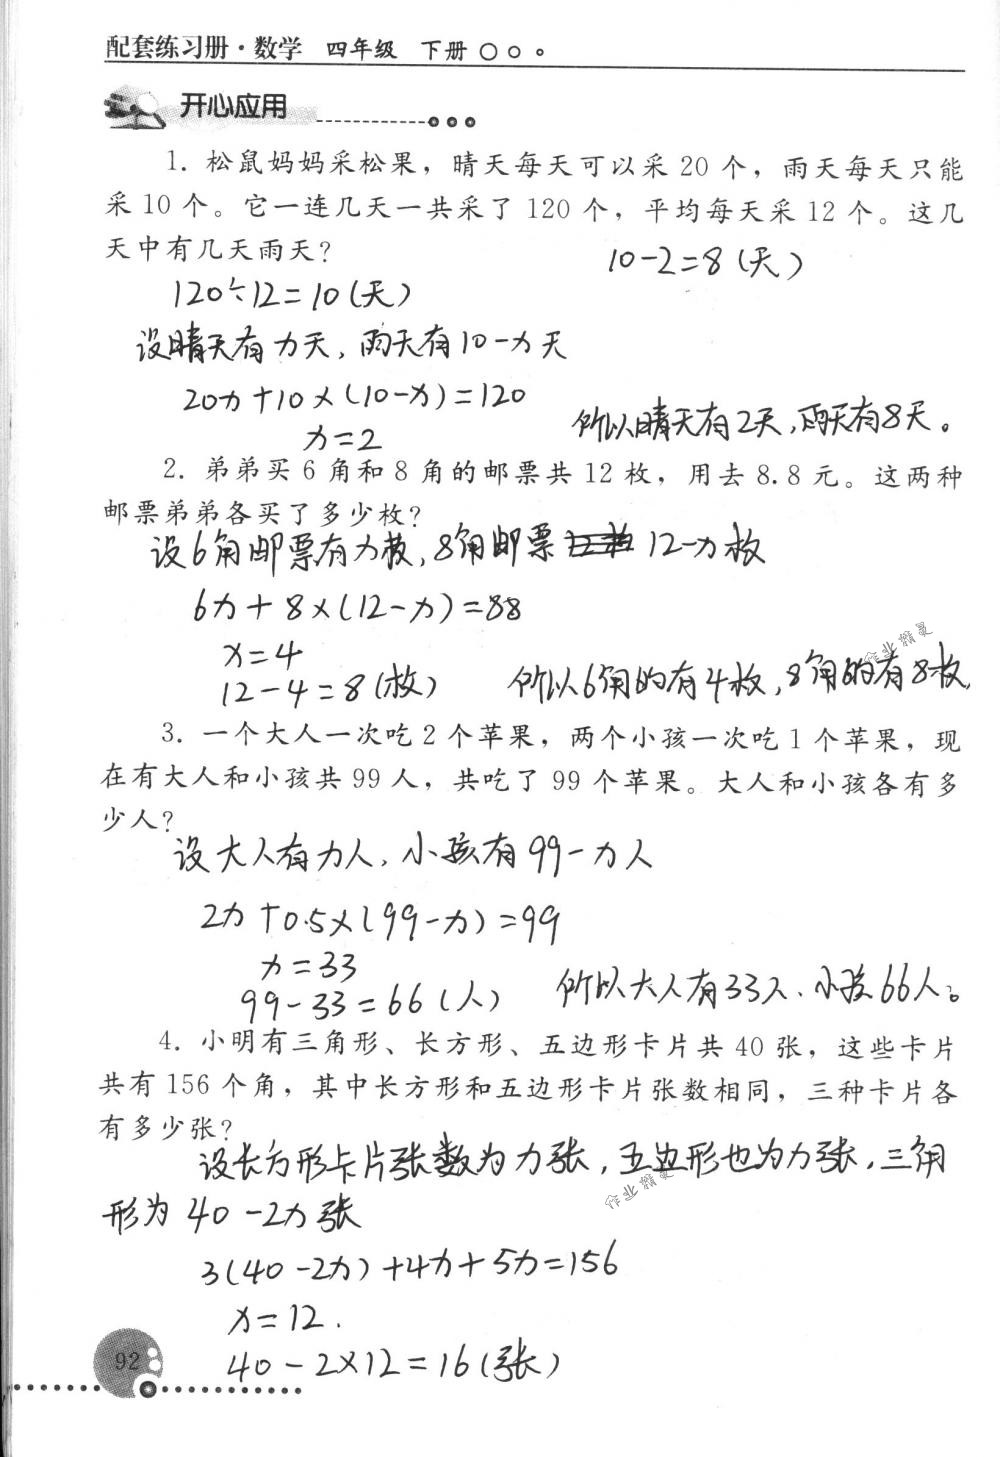 配套练习册·数学 四年级 下册
开心应用
1. 松鼠妈妈采松果，晴天每天可以采 20 个，雨天每天只能
采 10 个。它一连几天一共采了 120 个，平均每天采 12 个。这几
天中有几天雨天？
10-2=8(天)
120÷12=10(天)
设晴天有x天，雨天有10-x天
20x+10×(10-x)=120
x=2
所以晴天有2天，雨天有8天。
2. 弟弟买 6 角和 8 角的邮票共 12 枚，用去 8.8 元。这两种
邮票弟弟各买了多少枚？
设6角邮票有x枚，8角邮票12-x枚
6x+8×(12-x)=88
x=4
12-4=8(枚)
所以6角的有4枚，8角的有8枚
作业精灵
3. 一个大人一次吃 2 个苹果，两个小孩一次吃 1 个苹果，现
在有大人和小孩共 99 人，共吃了 99 个苹果。大人和小孩各有多
少人？
设大人有x人，小孩有99-x人
2x+0.5×(99-x)=99
x=33
99-33=66(人)
所以大人有33人、小孩66人。
4. 小明有三角形、长方形、五边形卡片共 40 张，这些卡片
共有 156 个角，其中长方形和五边形卡片张数相同，三种卡片各
有多少张？
设长方形卡片张数为x张，五边形也为x张，三角
形为40-2x张
作业精灵
3(40-2x)+4x+5x=156
x=12.
40-2×12=16(张)
92